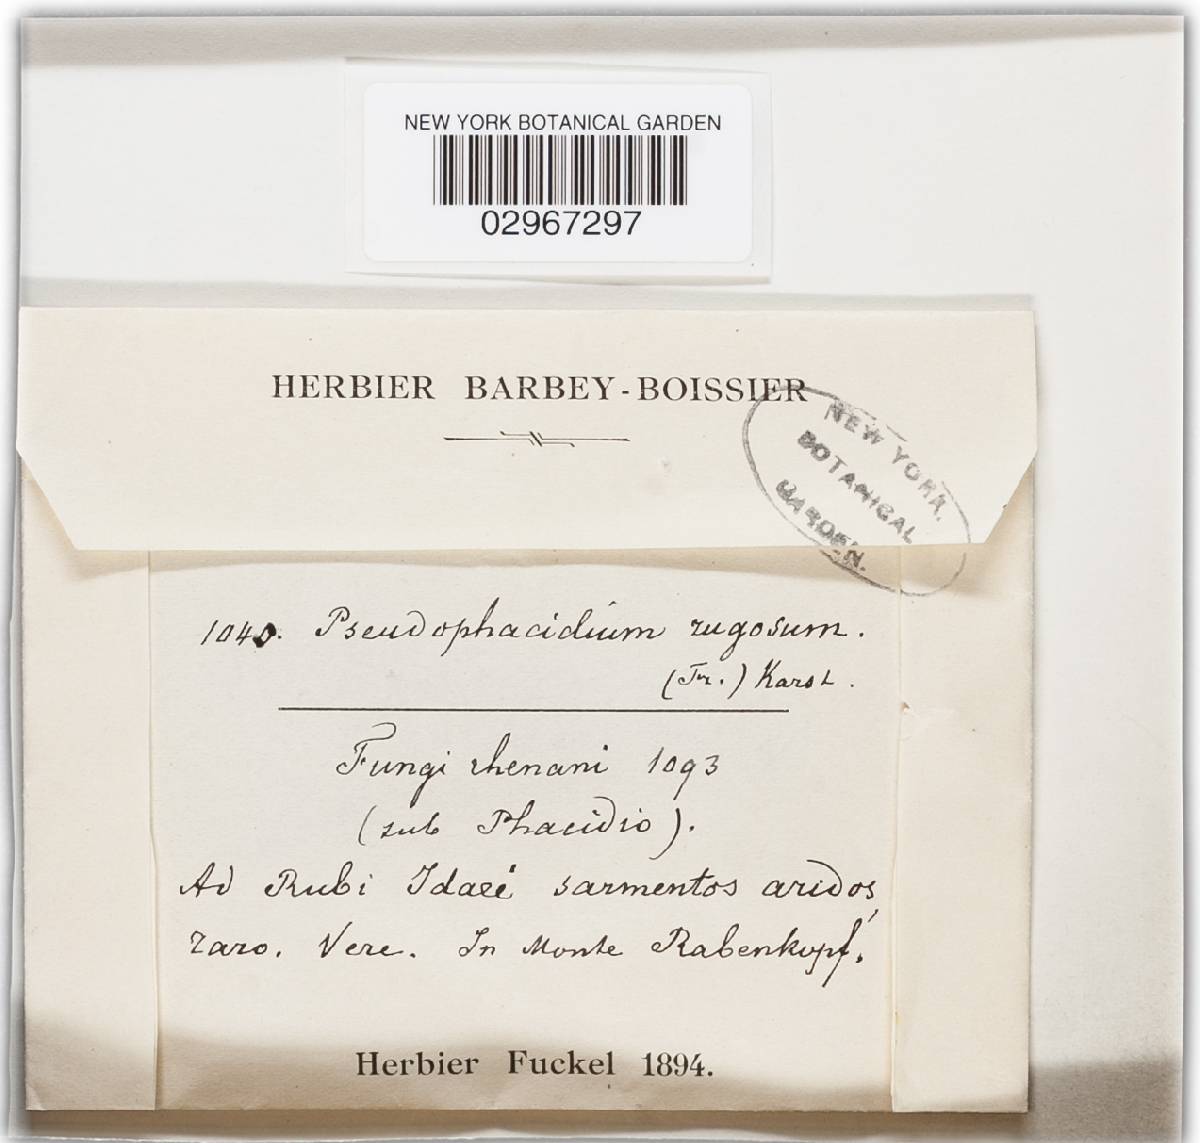 NEW YORK BOTANICAL GARDEN
02967297
HERBIER BARBEY-BOISSIER
NEW YORK
BOTANICAL
GARDEN.
1040. Pseudophacidium rugosum.
(Fr.) Karst.
Fungi rhenani 1093
(sub Phacidio).
Ad Rubi Idaei sarmentos aridos,
raro. Vere. In Monte Rabenkopf.
Herbier Fuckel 1894.